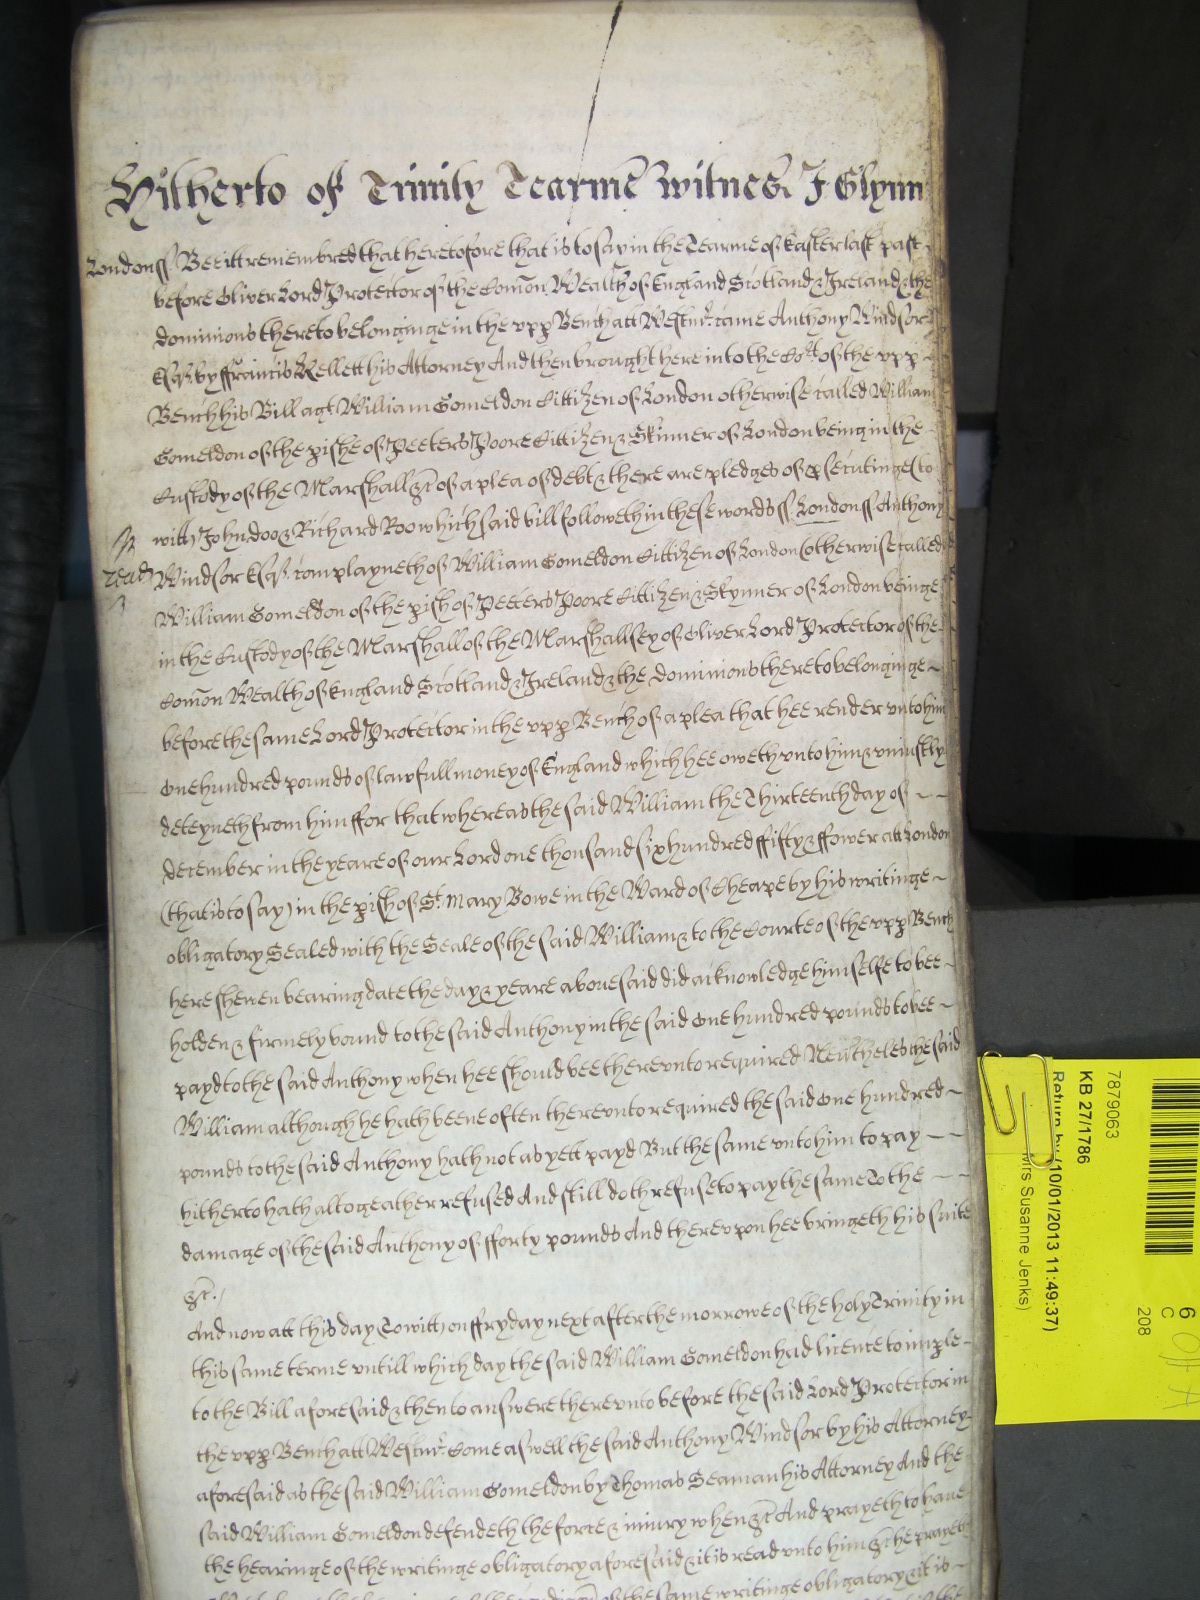 Hitherto of Trinity Tearme Witnes J Glynn
London ss Bee itt remembred that heretofore that is to say in the Tearme of Easter last past
before Oliver Lord Protector of the Comon Wealth of England Scotland & Ireland & the
dominions thereto belonginge in the upp Bench att Westmr. came Anthony Windsor
Esqr. by ffrancis Kellett his Attorney And then brought here into the Cort of the upp
Bench his Bill agt William Gomeldon Cittizen of London otherwise called William
Gomeldon of the pishe of Peeters Poore Cittizen & Skinner of London being in the
Custody of the Marshall &c of a plea of debt & there are pledges of psecutinge (to
witt) John doo & Richard Roo which said bill followeth in these words ss London ss Anthony
Windsor Esqr. complayneth of William Gomeldon Cittizen of London (otherwise called
William Gomeldon of the pish of Peeters Poore Cittizen & Skynner of London beinge
in the Custody of the Marshall of the Marshallsey of Oliver Lord Protector of the
Comon Wealth of England Scotland & Ireland & the dominions thereto belonginge
before the same Lord Protector in the upp Bench of a plea that hee render unto him
One hundred pounds of lawfull money of England which hee oweth unto him & uniustly
deteyneth from him ffor that whereas the said William the Thirteenth day of
December in the yeare of our Lord one thousand six hundred ffifty & ffower att London
(that is to say) in the pish of St. Mary Bowe in the Ward of Cheape by his writinge
obligatory Sealed with the Seale of the said William & to the Courte of the upp Bench
here shewen bearing date the day & yeare abouesaid did acknowledge himselfe to bee
holden & firmely bound to the said Anthony in the said One hundred pounds to bee
payd to the said Anthony when hee should bee thereunto required Neutheles the said
William although he hath beene often thereunto required the said One hundred
pounds to the said Anthony hath not as yett payd But the same unto him to pay
hitherto hath altogeather refused And still doth refuse to pay the same To the
damage of the said Anthony of fforty pounds And thereupon hee bringeth his suite
&c.
And now att this day To witt on ffryday next after the morrowe of the holy Trinity in
this same terme untill which day the said William Gomeldon had licence to imple
to the Bill aforesaid & then to answere thereunto before the said Lord Protector in
the upp Bench att Westmr. Come aswell the said Anthony Windsor by his Attorney
aforesaid as the said William Gomeldon by Thomas Seaman his Attorney And the
said William Gomeldon defendeth the force & iniury when &c And prayeth to haue
the hearinge of the writinge obligatory aforesaid & itt is read unto him &c he prayeth
of the same writinge obligatory & it is
7879063
KB 27/1786
Return by (10/01/2013 11:49:37)
Mrs Susanne Jenks)
6
C
208